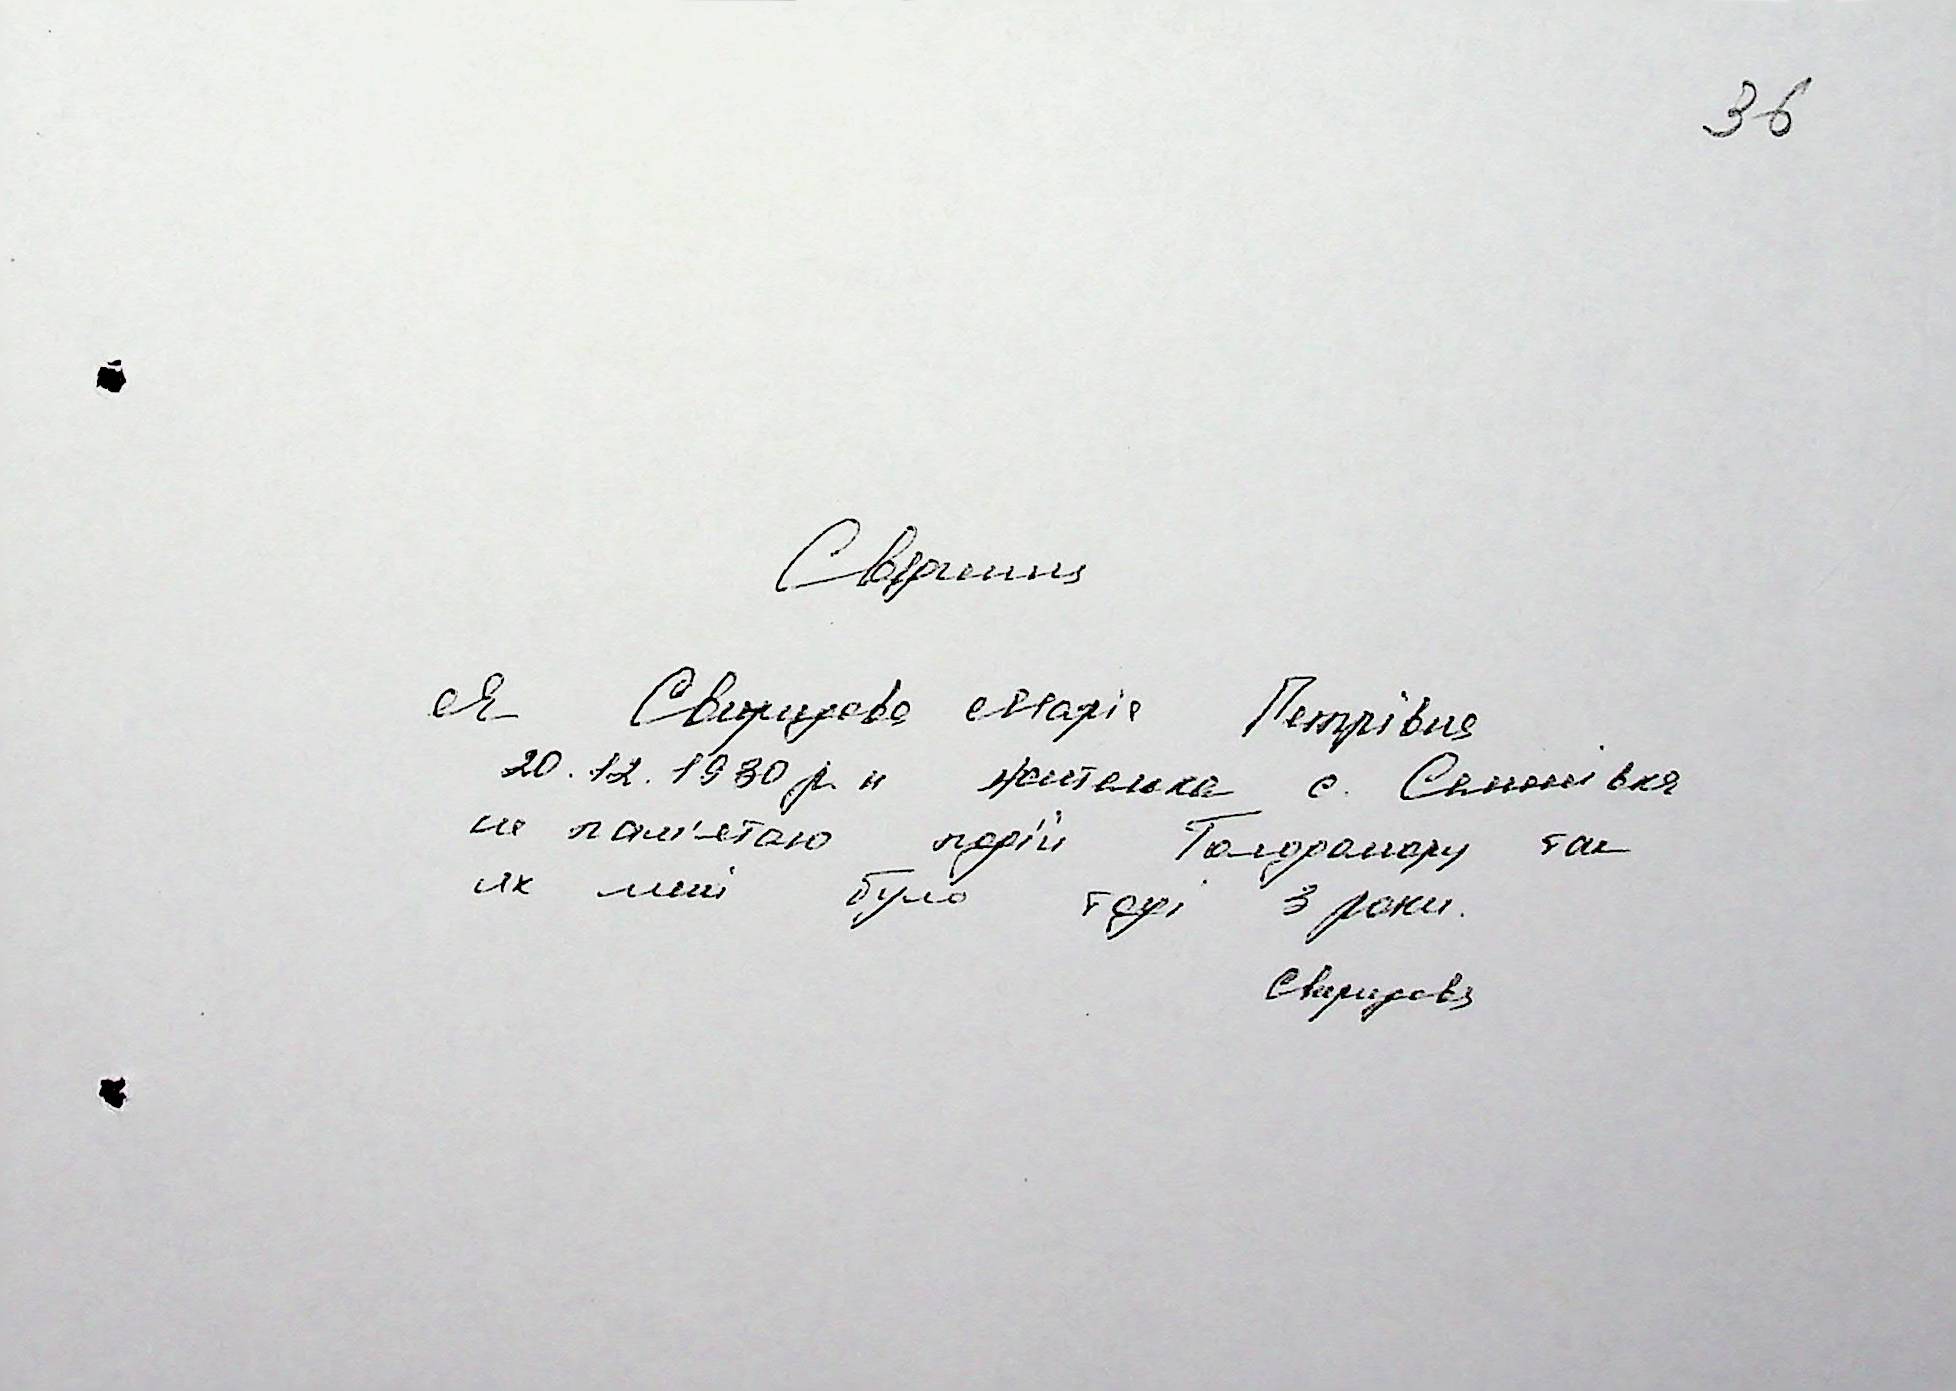 36
Свідчення
Я Свиридова Марія Петрівна
20.12.1930 р. н жителька с. Семенівка
не пам'ятаю подій Голодомору так
як мені було тоді 3 роки.
Свиридова